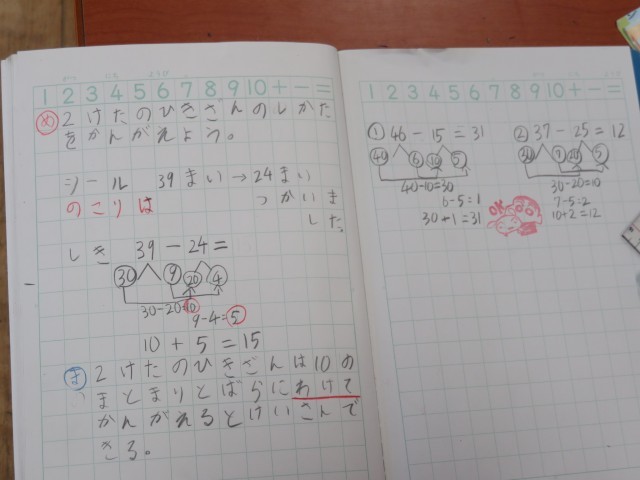 1 2 3 4 5 6 7 8 9 10 + − =
め 2けたのひきざんのしかた
をかんがえよう。
シール 39まい→24まい
のこりは つかいま
した
しき 39−24=
30 9 20 4
30−20=10
9−4=5
10+5=15
ま 2けたのひきざんは10の
まとまりとばらにわけて
かんがえるとけいさんで
きる。
1 2 3 4 5 6 7 8 9 10 + − =
① 46−15=31
40 6 10 5
40−10=30
6−5=1
30+1=31
② 37−25=12
30 7 20 5
30−20=10
7−5=2
10+2=12
OK